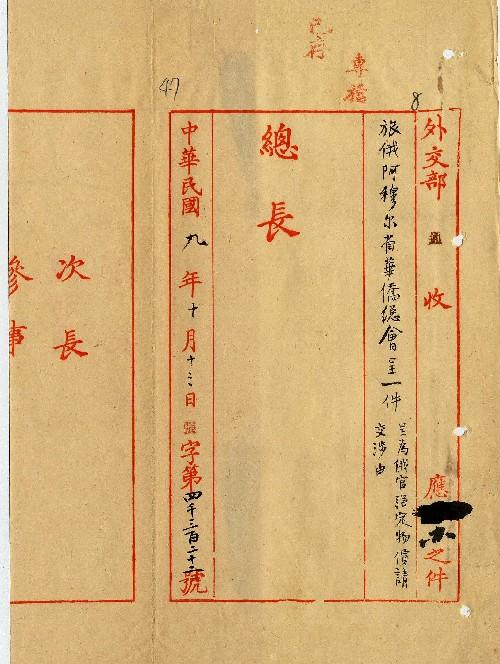 已存
專檔
8
47
外交部 通 收 應 之件
旅俄阿穆尔省華僑總會呈一件
呈為俄官強定物價請
交涉由
總長
中華民國九年十月十三日 張字第四千三百二十二號
次長
參事